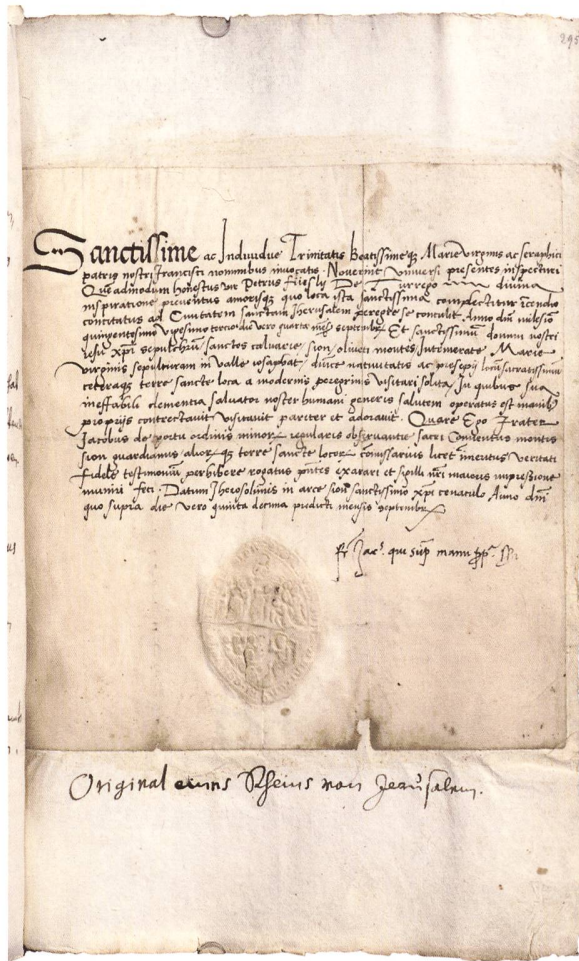 295
Sanctissime ac Individue Trinitatis Beatissimeq Marie virginis ac seraphici
patris nostri francisci nominibus invocatis. Noverint universi presentes inspecturi
Queadmodum honestus vir Petrus fiiesly De Turrego divina
inspiratione preventus amorisq quo loca ista sanctissima complectitur
concitatus ad Civitatem sanctam Iherusalem peregre se contulit Anno dni milesio
quingentesimo vigesimo tercio die vero quarta septembris Et sanctissimū domini nostri
iesu xpi sepulchrū sanctos calvarie, sion, oliveti montes, Intemerate Marie
virginis sepulturam in valle iosaphat, nativitatis ac presepij locū sacratissimū
ceteraq terre sancte loca a modernis peregrinis visitari solita, In quibus sua
ineffabili clementia salvator noster humani generis salutem operatus est manibꝰ
proprijs contrectavit visitavit pariter et adoravit. Quare Ego Frater
Iacobus de portu ordinis minorꝝ regularis observantie sacri Conventus montis
sion guardianus aliorꝝq terre sancte locorꝝ comissarius licet imeritus veritati
fidele testimoniū perhibere rogatus pñtes exarari et sigilli nri maioris impressione
muniri feci. Datum Iherosolimis in arce sion sanctissimo xpi cenaculo Anno dni
quo supra die vero quinta decima predicti mensis septembris
fr Iac. qui sup manu ppa
Original eines Rheius von Jerusalem.